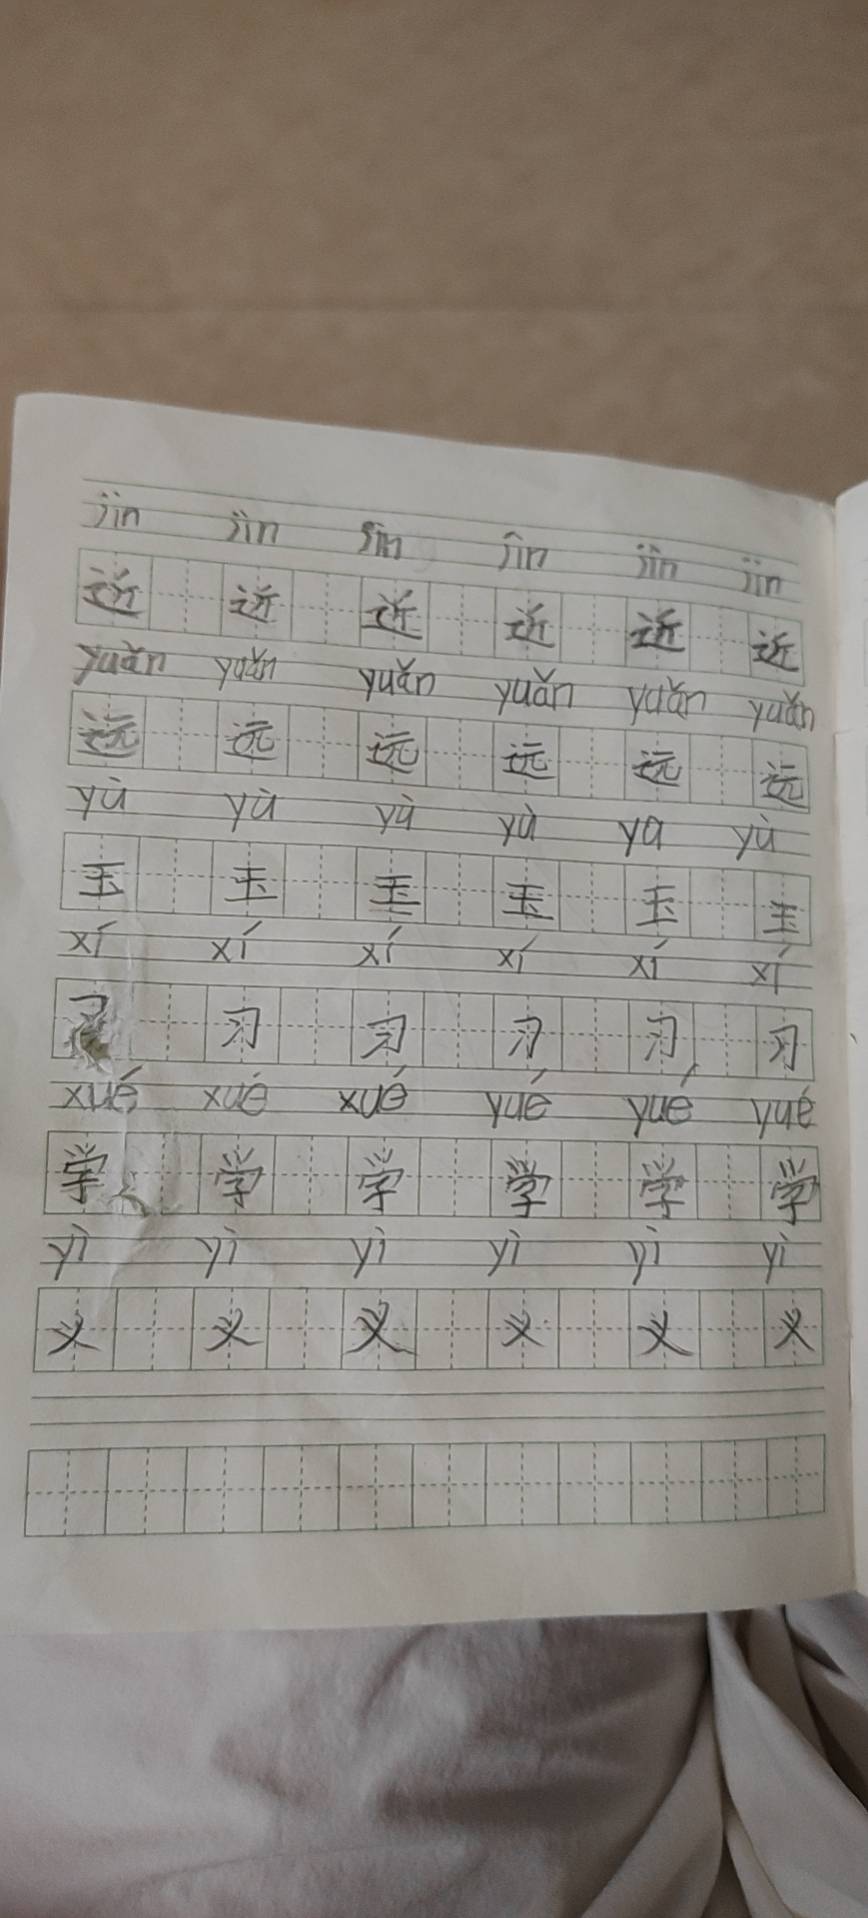 jìn jìn jìn jìn jìn jìn
近 近 近 近 近 近
yuǎn yuǎn yuǎn yuǎn yuǎn yuǎn
远 远 远 远 远 远
yù yù yù yù yu yù
玉 玉 玉 玉 玉 玉
xí xí xí xí xí xí
习 习 习 习 习
xué xué xué yué yué yué
学 学 学 学 学 学
yì yì yì yì yì yì
义 义 义 义 义 义